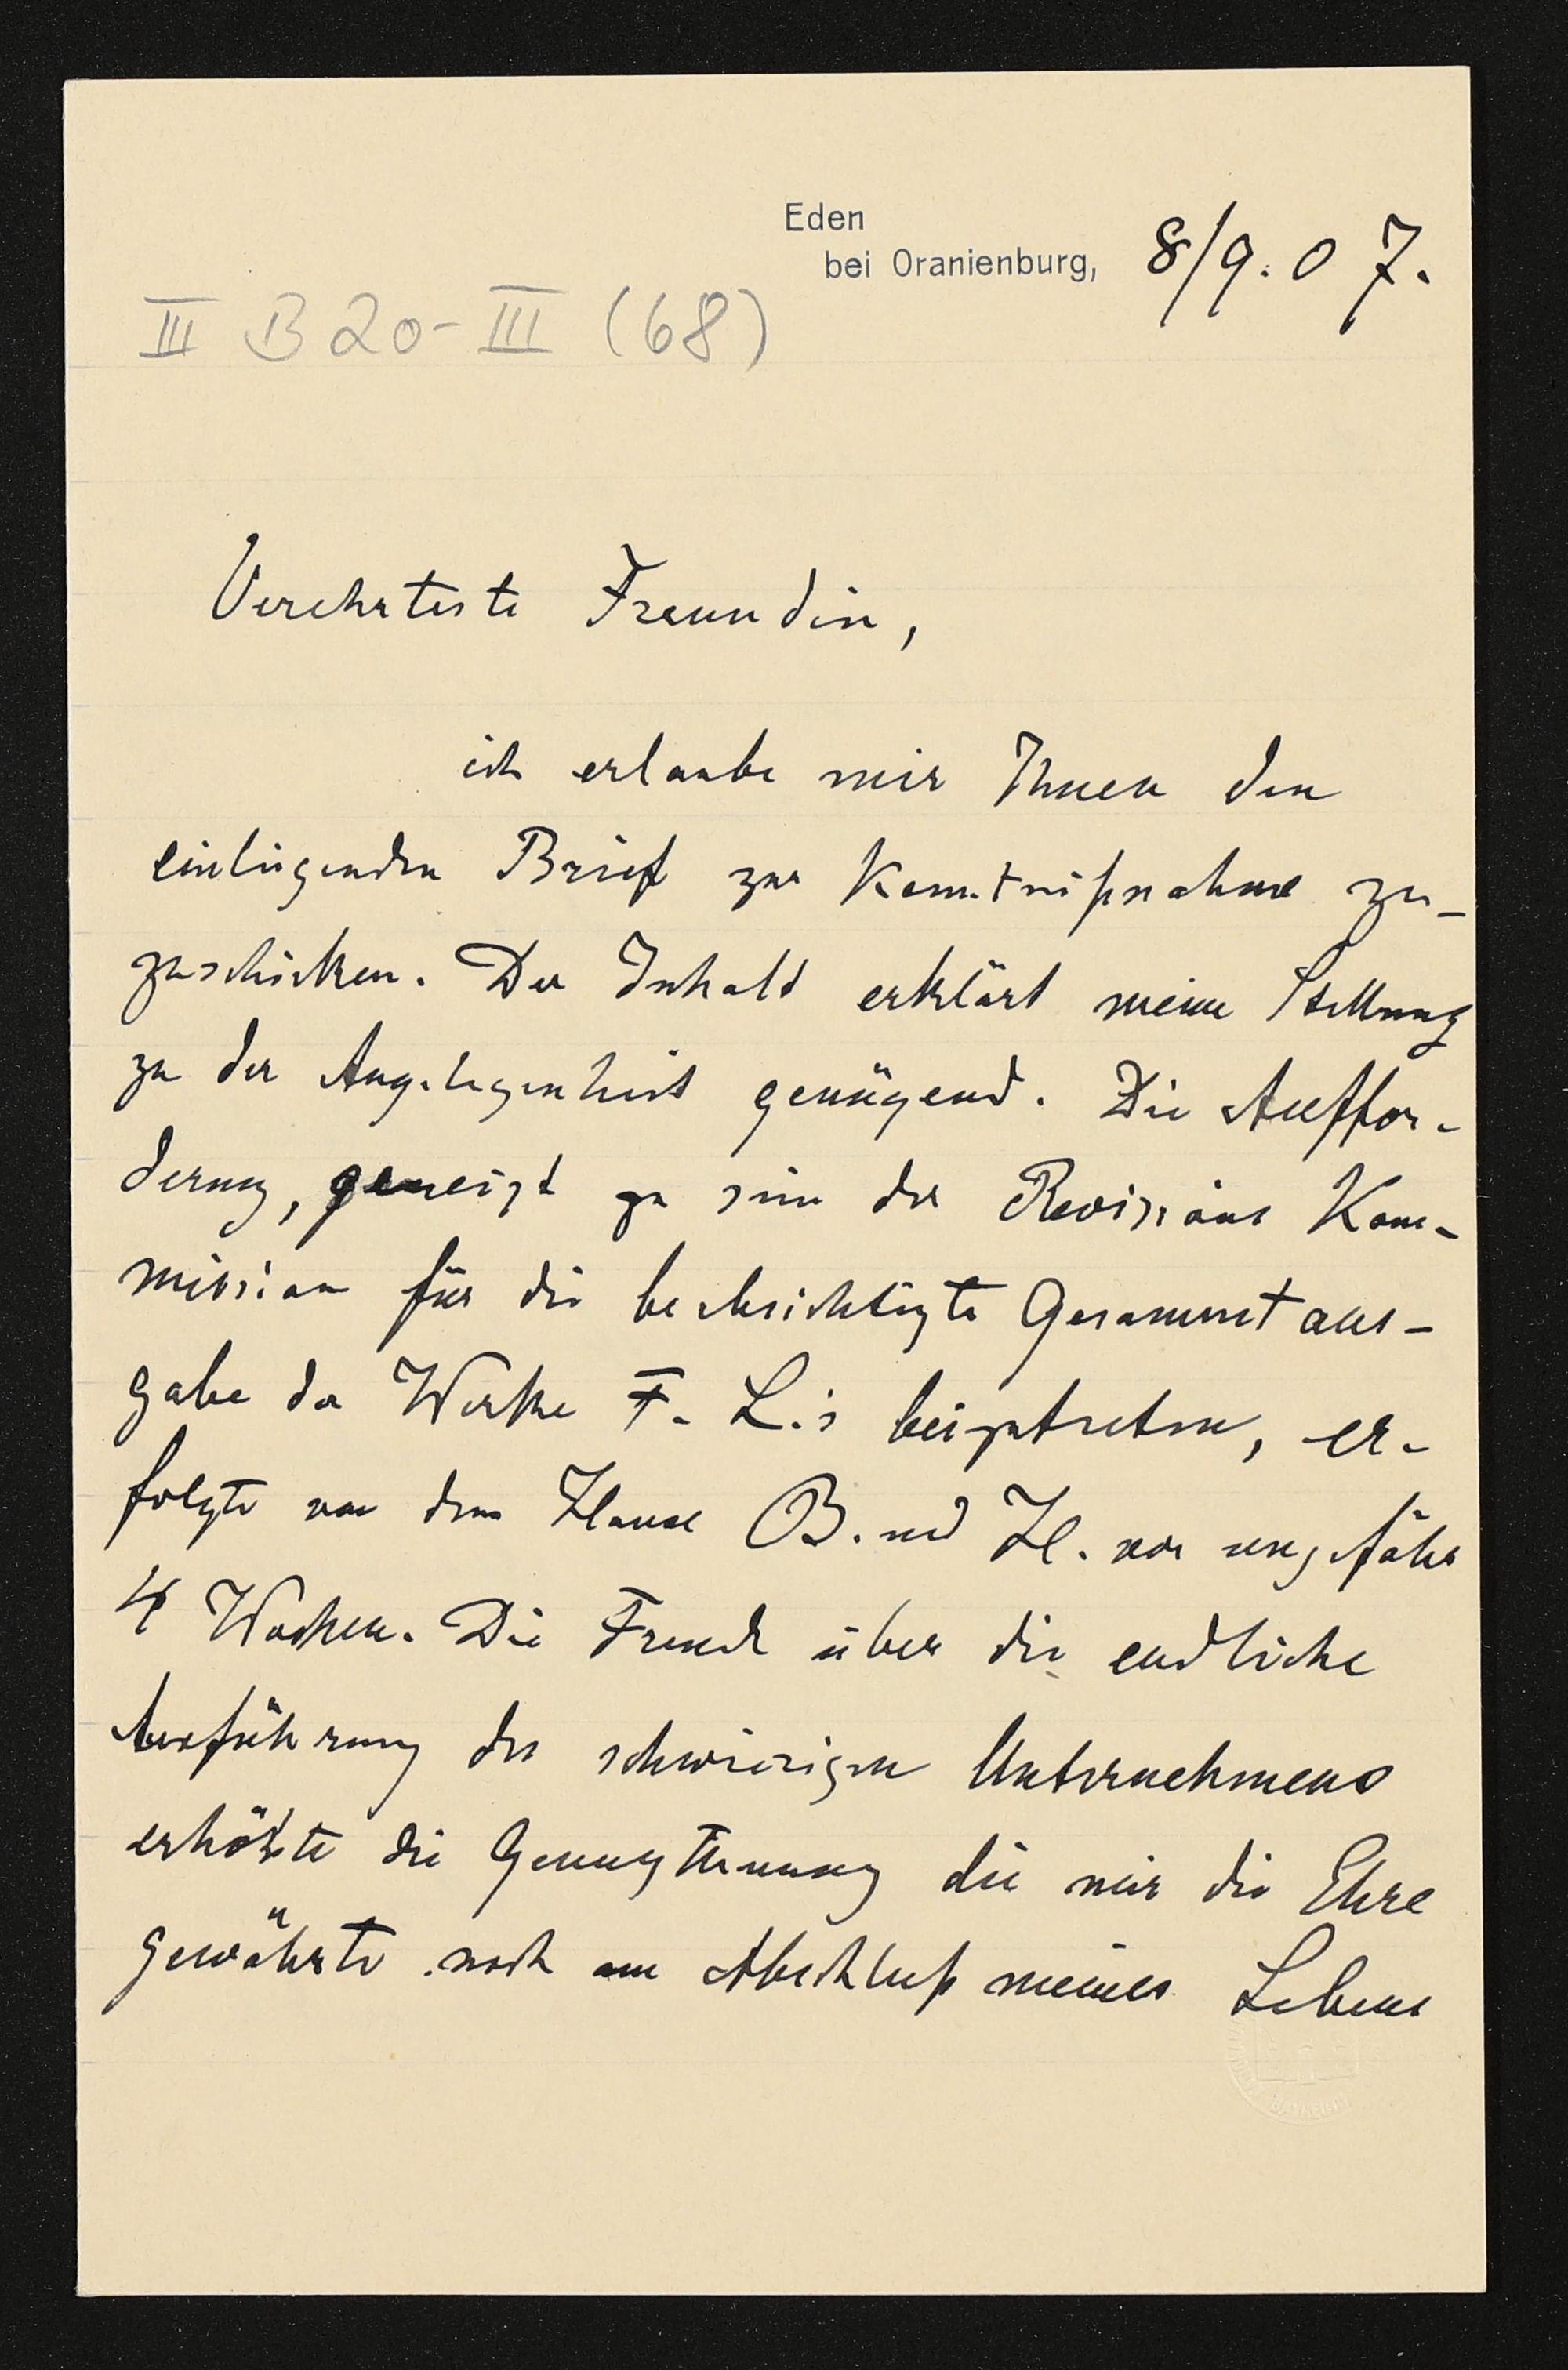 Eden
bei Oranienburg, 8/9. 07.
III B 20-III (68)
Verehrteste Freundin,
ich erlaube mir Ihnen den
einliegenden Brief zur Kenntnißnahme zu-
zuschicken. Der Inhalt erklärt meine Stellung
zu der Angelegenheit genügend. Die Auffor-
derung, geneigt zu sein der Revisions Kom-
mission für die beabsichtigte Gesammtaus-
gabe der Werke F. L.s beizutreten, er-
folgte von dem Hause B. und H. vor ungefähr
4 Wochen. Die Freude über die endliche
Ausführung des schwierigen Unternehmens
erhöhte die Genugthuung die mir die Ehre
gewährte noch am Abschluß meines Lebens